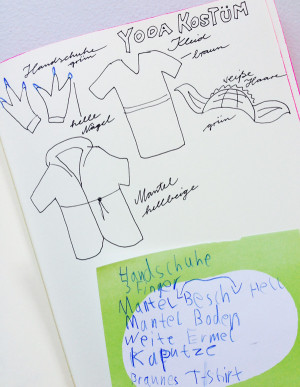 YODA KOSTÜM
Handschuhe
grün
Kleid
braun
weiße
Haare
helle
Nägel
grün
Mantel
hellbeige
Handschuhe
3 Finger
Mantel Besch Hell
Mantel Boden
Weite Ermel
Kaputze
Braunes T-shirt